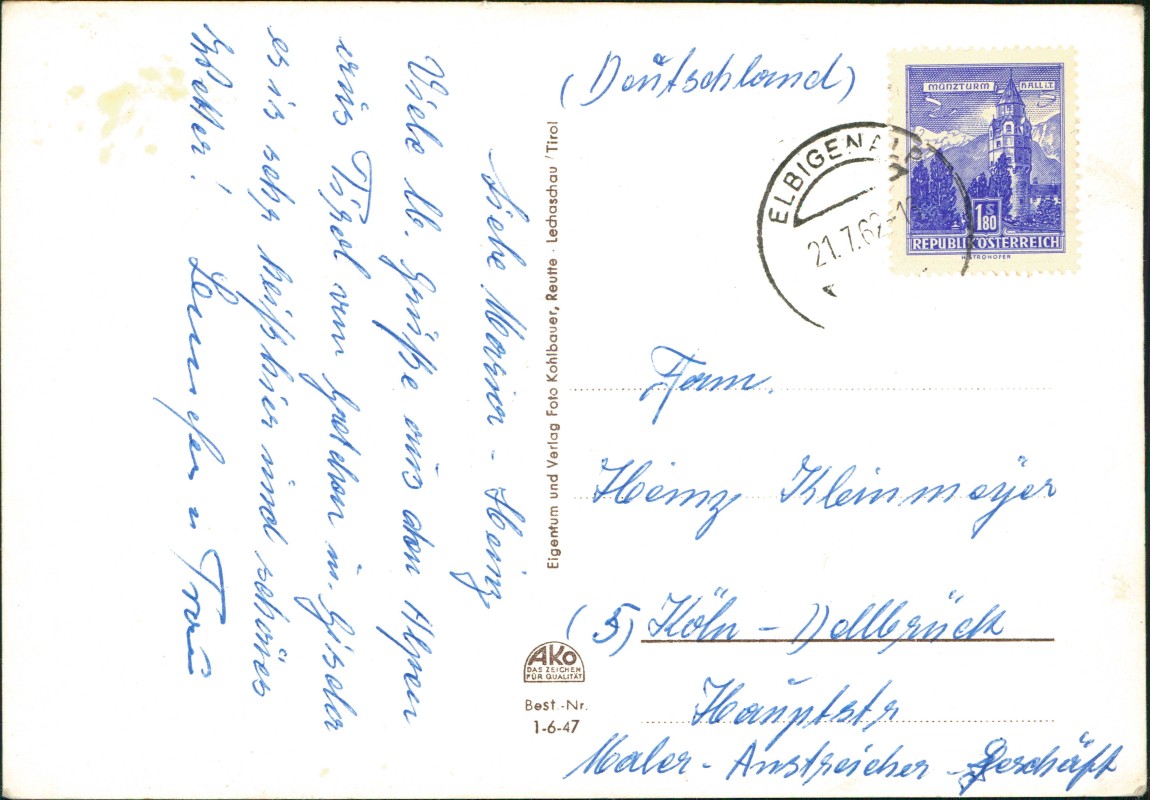 Liebe Maria - Heinz
Viele lb. Grüße aus den Alpen
aus Tirol von Gretchen u. Gisela
es is sehr heiß hier und schönes
Wetter!
u Frau
Eigentum und Verlag Foto Kohlbauer, Reutte - Lechaschau/Tirol
AKO
DAS ZEICHEN
FÜR QUALITÄT
Best.-Nr.
1-6-47
(Deutschland)
MÜNZTURM HALL i.T.
1 S 80
REPUBLIK ÖSTERREICH
H. STROHOFER
ELBIGENALP
21.7.62-1
Fam.
Heinz Kleinmeyer
(5) Köln - Dellbrück
Hauptstr
Maler - Anstreicher - Geschäft